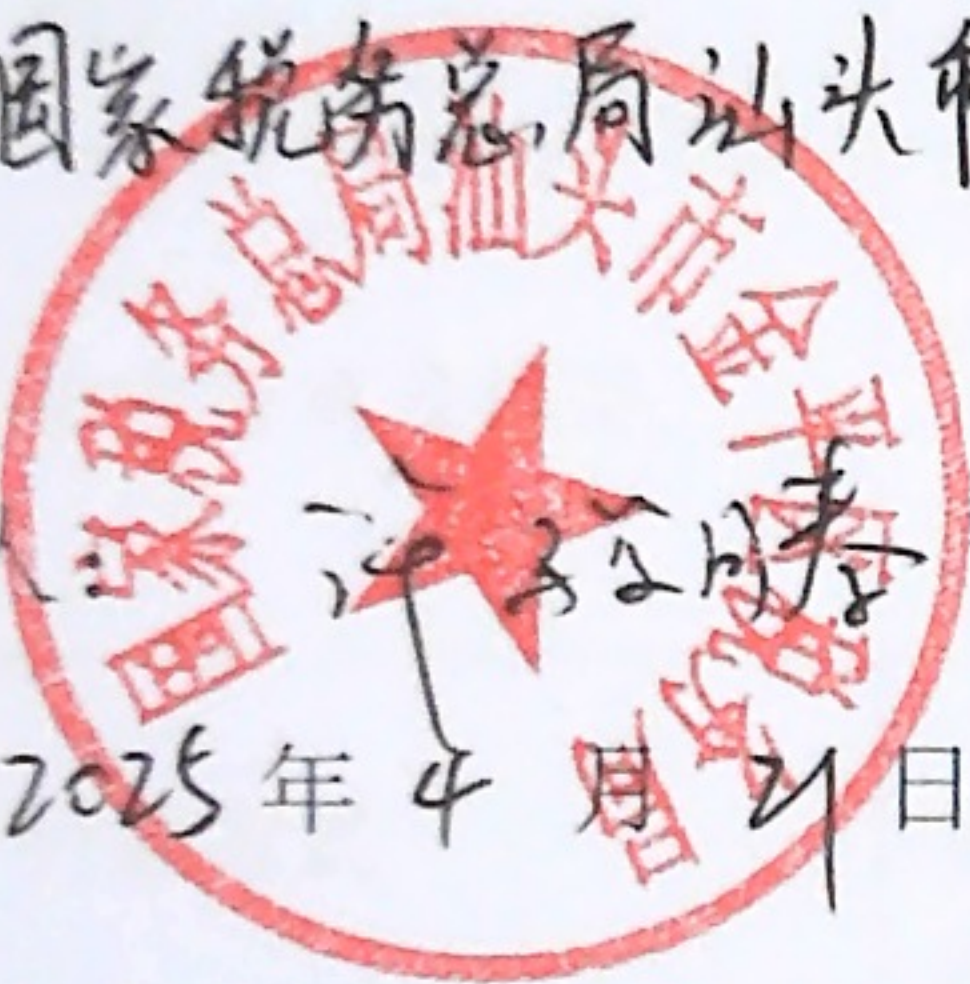 国家税务总局汕头市
国家税务总局汕头市金平区税务局
2025年4月21日